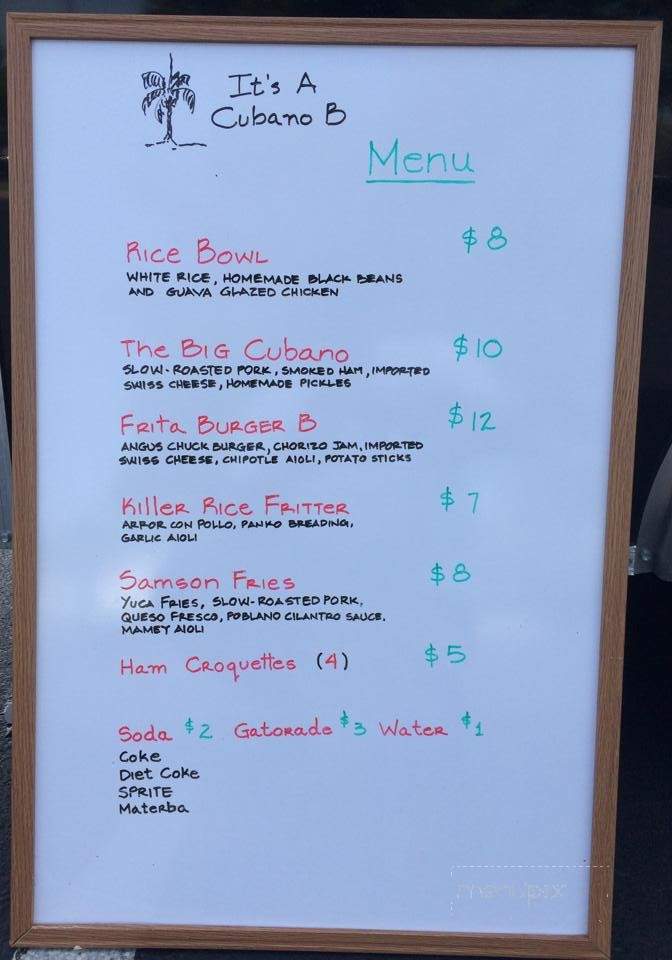 It's A
Cubano B
Menu
Rice Bowl $8
WHITE RICE, HOMEMADE BLACK BEANS
AND GUAVA GLAZED CHICKEN
The Big Cubano $10
SLOW-ROASTED PORK, SMOKED HAM, IMPORTED
SWISS CHEESE, HOMEMADE PICKLES
Frita Burger B $12
ANGUS CHUCK BURGER, CHORIZO JAM, IMPORTED
SWISS CHEESE, CHIPOTLE AIOLI, POTATO STICKS
Killer Rice Fritter $7
ARROR CON POLLO, PANKO BREADING,
GARLIC AIOLI
Samson Fries $8
YUCA FRIES, SLOW-ROASTED PORK,
QUESO FRESCO, POBLANO CILANTRO SAUCE.
MAMEY AIOLI
Ham Croquettes (4) $5
Soda $2 Gatorade $3 Water $1
Coke
Diet Coke
SPRITE
Materba
menupix